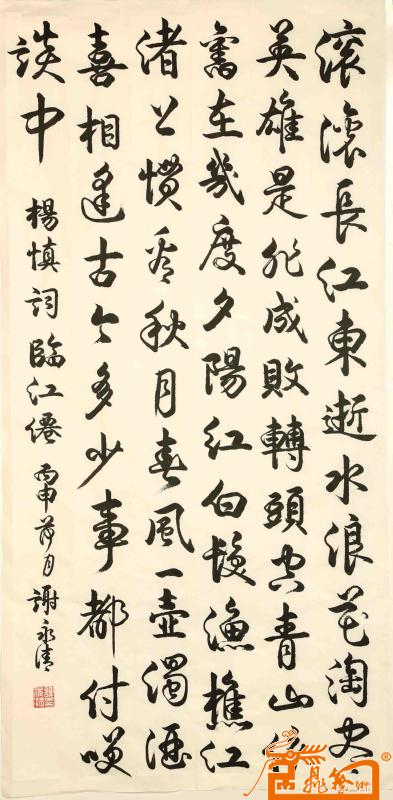 滚滚長江東逝水浪花淘尽
英雄是非成敗轉頭空青山依
舊在幾度夕陽紅白髮漁樵江
渚上慣看秋月春風一壺濁酒
喜相逢古今多少事都付笑
談中
楊慎詞臨江僊 丙申月 謝永清